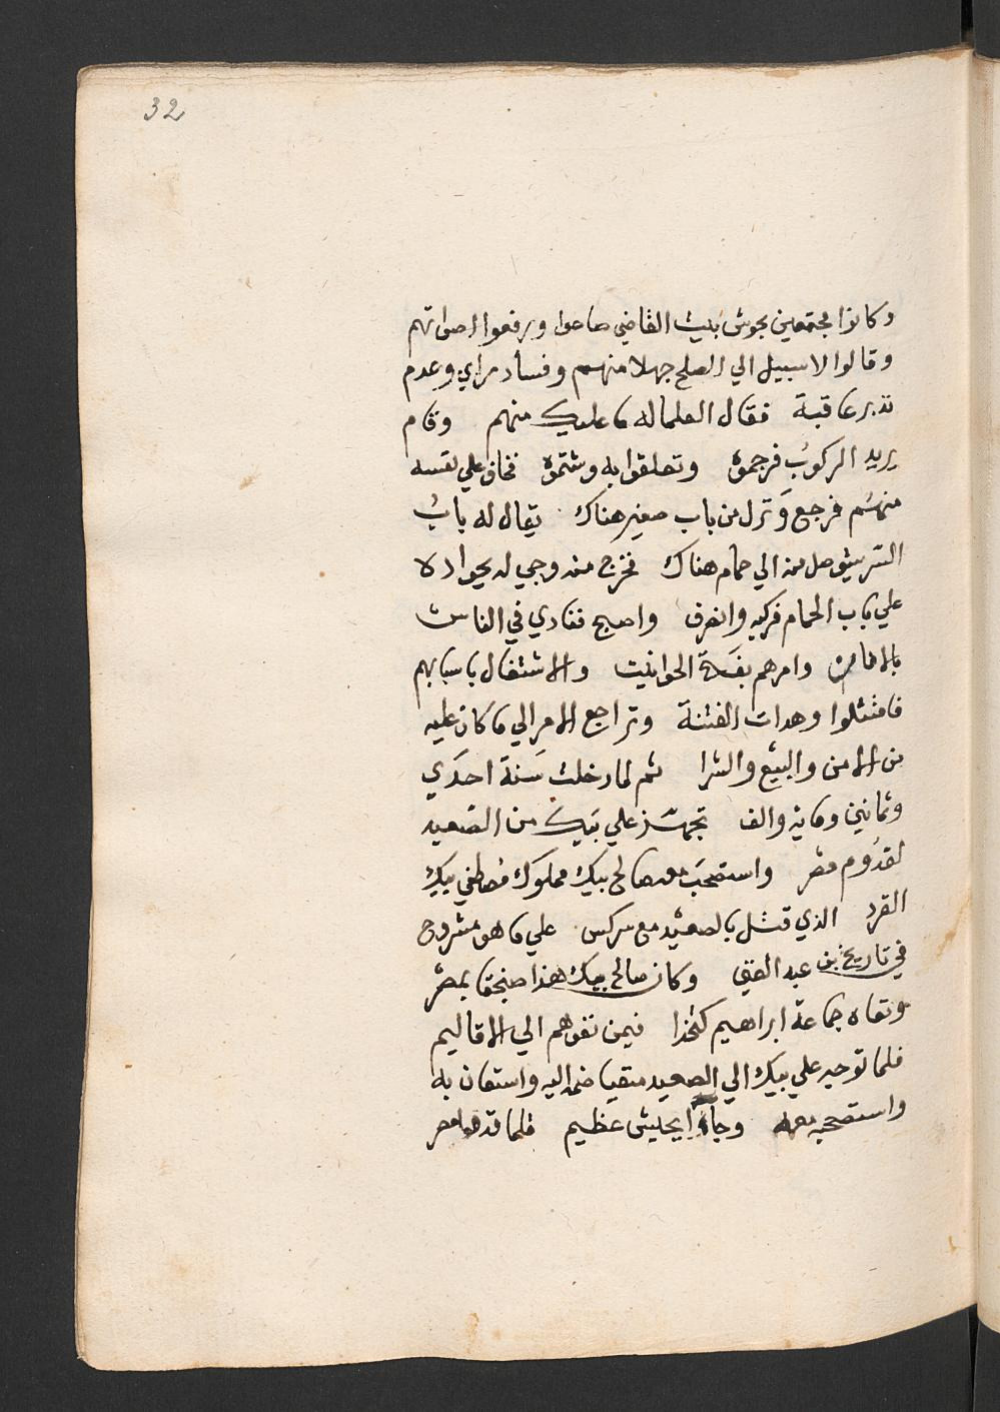 32
وكانوا مجتمعين بحوش بيت القاضي صاحوا ورفعوا اصواتهم
وقالوا لا سبيل الي الصلح جهلا منهم وفساد راي وعدم
تدبر عاقبة فقال العلما له ما عليك منهم وقام
يريد الركوب فرجموه وتعلقوا به وشتموه فخاف علي نفسه
منهم فرجع ونزل من باب صغير هناك يقال له باب
السر يتوصل منه الي حمام هناك فخرج منه وجي له بجواد لا
علي باب الحمام فركبه وانصرف واصبح فنادي في الناس
بالامان وامرهم بفتح الحوانيت والاشتغال باسبابهم
فامتثلوا وهدات الفتنة وتراجع الامر الي ما كان عليه
من الامن والبيع والشرا ثم لما دخلت سنة احدي
وثمانين وماية والف تجهز علي بيك من الصعيد
لقدوم مصر واستصحب معه صالح بيك مملوك مصطفي بيك
القرد الذي قتل بالصعيد مع سركس علي ما هو مشروح
في تاريخ بن عبد الغني وكان صالح بيك هذا صنجقا بمصر
ونفاه جماعة ابراهيم كتخدا فيمن نفوهم الي الاقاليم
فلما توجه علي بيك الي الصعيد منفيا ضمه اليه واستعان به
واستصحبه معه وجاوا بجيش عظيم فلما قدموا مصر